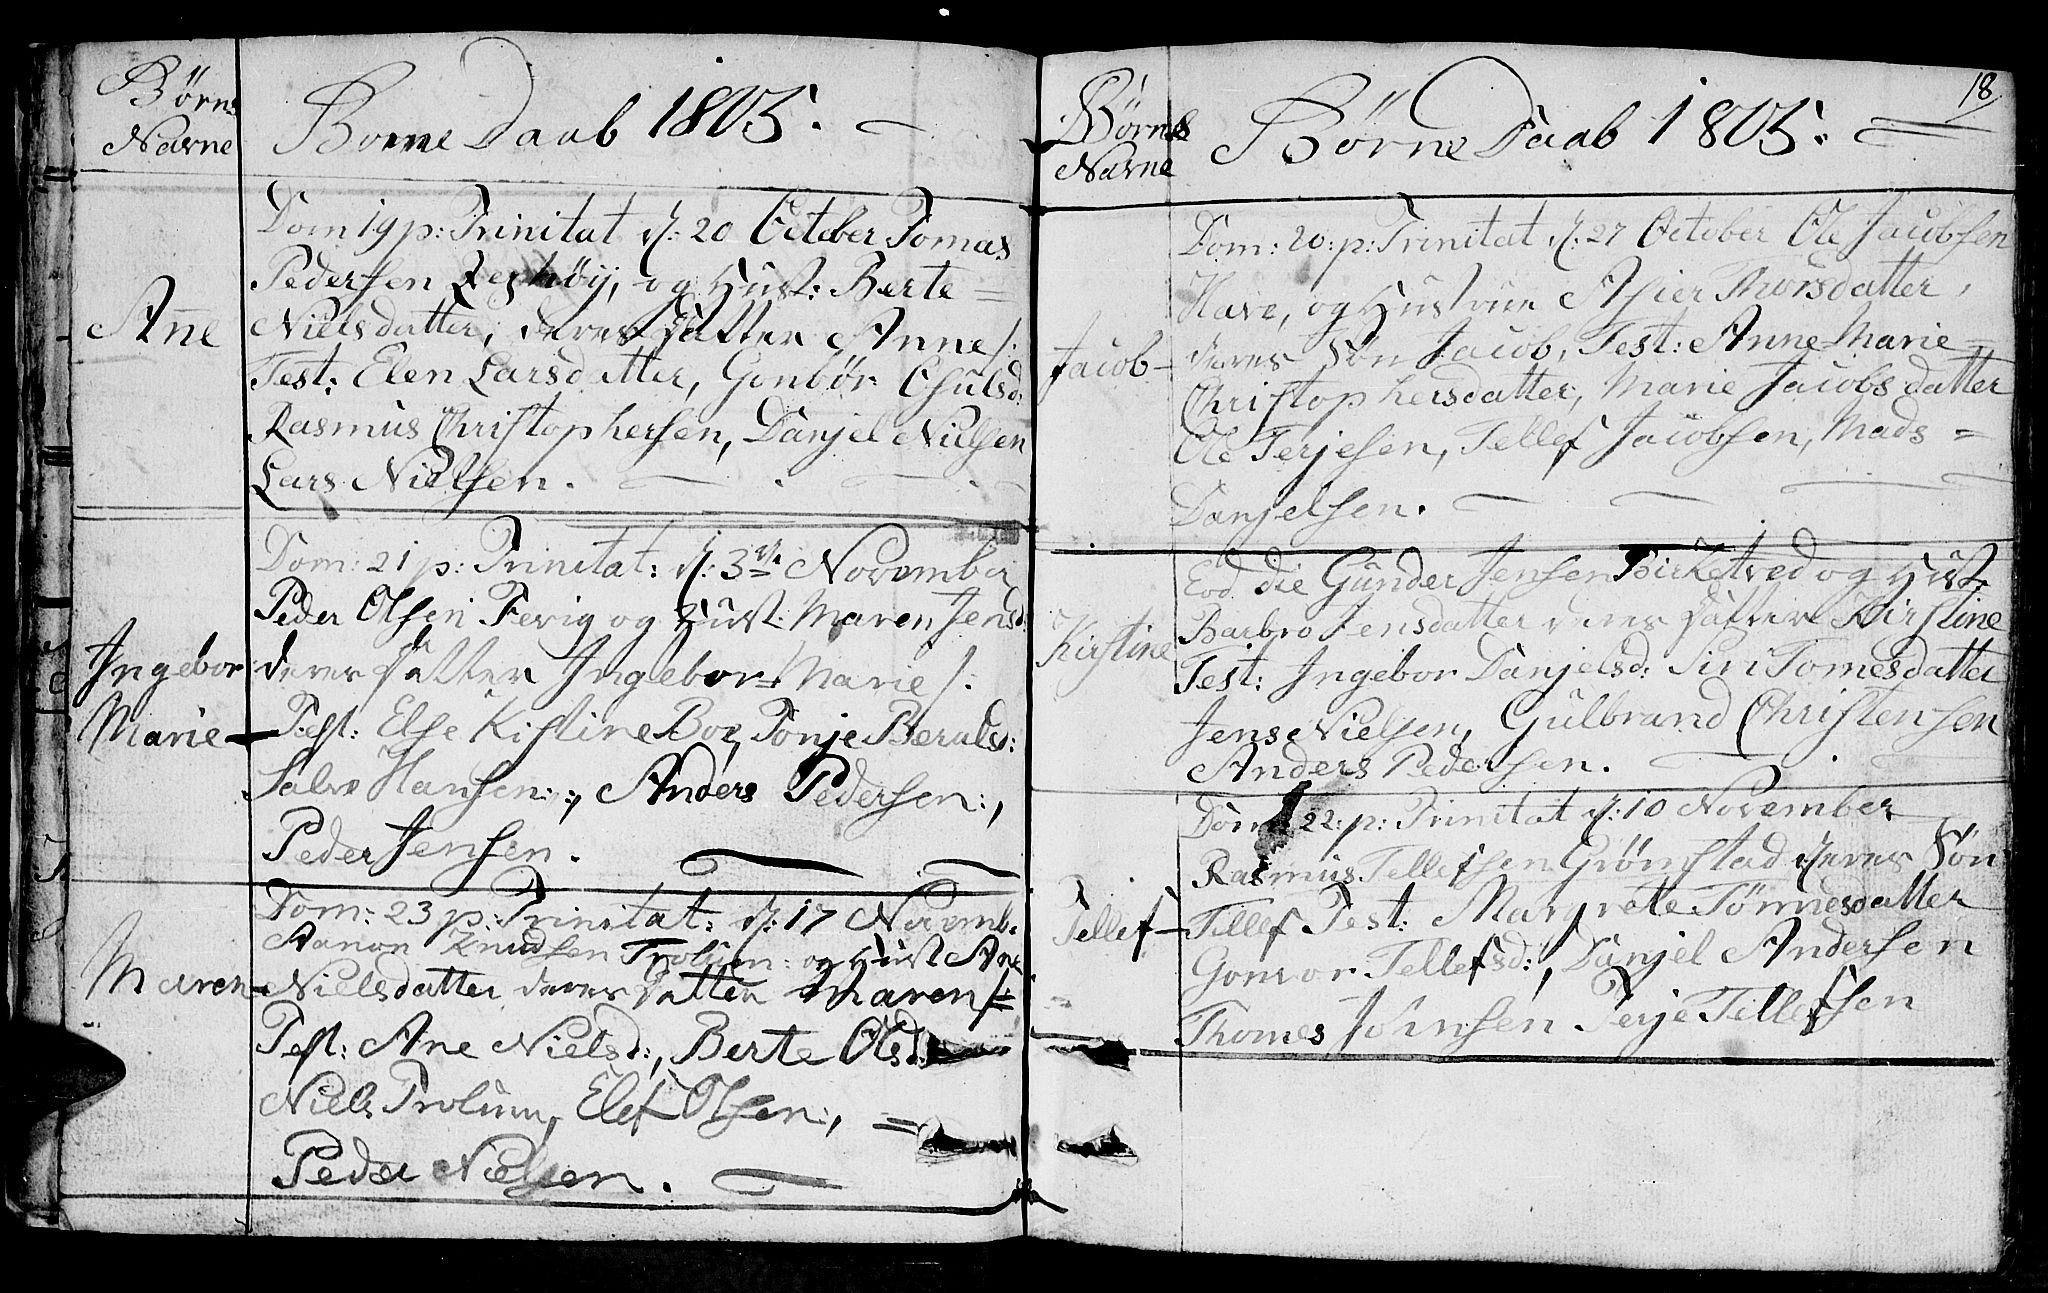 Børns
Navne
Borne Daab 1805.
Dom 19 p: Trinitat d: 20 October Tomas
Pedersen og Hust: Berte
Anne
Nielsdatter, deres Datter Anne /.
Test: Elen Larsdatter, Gonbør
Rasmus Christophersen, Danjel Nielsen
Lars Nielsen.
Dom: 21 p: Trinitat: d: 3die November
Peder Olsen Fevig og Hust: Maren Jensd:
Ingebor
Marie
deres Datter Ingebor Marie /.
Test: Else Kistine Boe, Tonje
Salve Hansen:, Anders Pedersen:,
Peder Jensen.
Dom: 23 p: Trinitat: d: 17 Novemb.
Aanon Knudsen og Hust Ane
Maren
Nielsdatter deres Datter Maren /.
Test: Ane Nielsd:, Berte Olsd:
Niels Elef Olsen:,
Peder Nielsen.
18
Børnes
Navne
Børne Daab 1805:
Dom: 20: p: Trinitat d: 27 October Ole Jacobsen
Have, og Hustrue Thorsdatter,
Jacob
deres Søn Jacob, Test: Anne Marie
Christophersdatter, Marie Jacobsdatter
Ole Terjesen, Tellef Jacobsen, Mads
Danjelsen.
Eod die Gunder Jensen Birketved og Hust
Barbro Jensdatter deres Datter Kirstine
Kirstine
Test: Ingebor Danjelsd: Siri Tomesdatter
Jens Nielsen, Gulbrand Christensen
Anders Pedersen.
Dom: 22: p: Trinitat d: 10 November
Rasmus Tellefsen Grømstad deres Søn
Tellef
Tellef Test: Margrete Tønnesdatter
Gonvor Tellefsd:, Danjel Andersen
Thomes Johnsen Terje Tellefsen